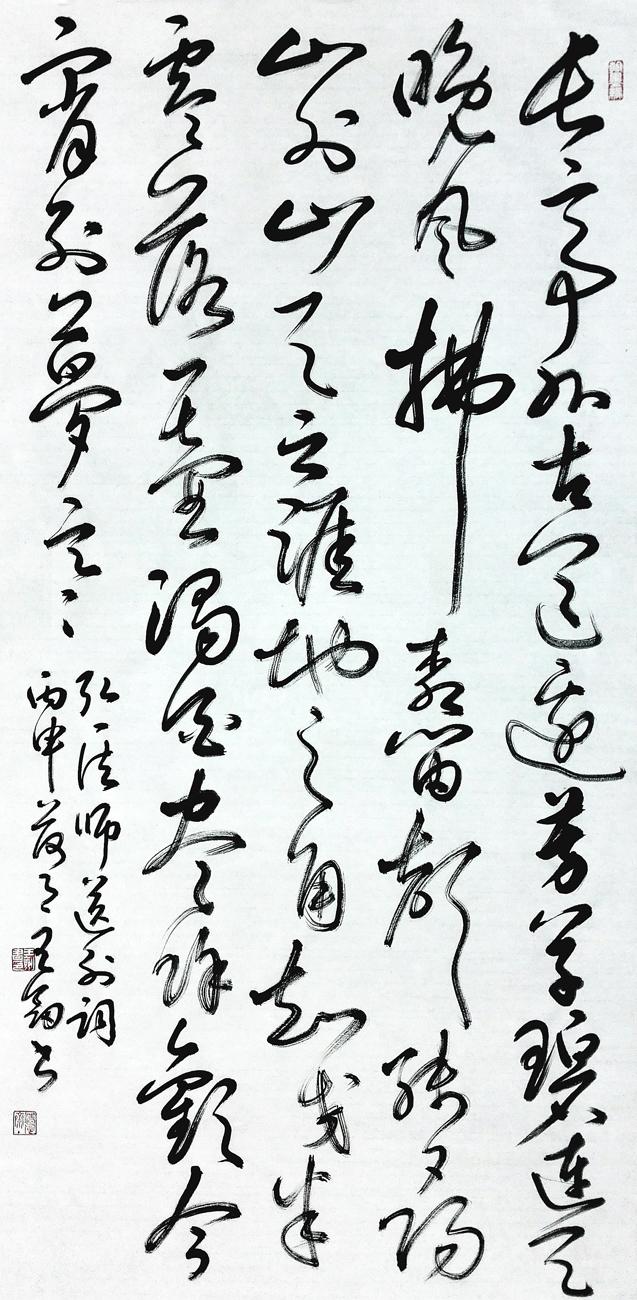 長亭外古道邊芳草碧連天
晚風拂柳笛聲殘夕陽
山外山天之涯地之角知交半
零落一壺濁酒盡餘歡今
宵別夢寒
弘一法師送別詞
丙申 月王 書